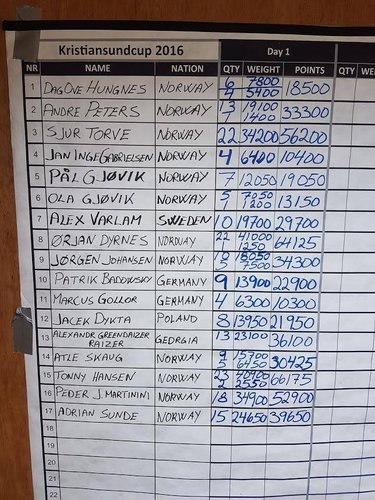 Kristiansundcup 2016 Day 1
NR NAME NATION QTY WEIGHT POINTS QTY WE
1 DAG OVE HUNGNES NORWAY 6 7800 18500
4 5400
2 ANDRE PETERS NORWAY 13 19100 33300
1 1400
3 SJUR TORVE NORWAY 22 34200 56200
4 JAN INGE GABRIELSEN NORWAY 4 6400 10400
5 PÅL GJØVIK NORWAY 7 12050 19050
6 OLA GJØVIK NORWAY 5 7050 13150
1 200
7 ALEX VARLAM SWEDEN 10 19700 29700
8 ØRJAN DYRNES NORWAY 22 41000 64125
1250
9 JØRGEN JOHANSEN NORWAY 18050 34300
7500
10 PATRIK BADOWSKY GERMANY 9 13900 22900
11 MARCUS GOLLOR GERMANY 4 6300 10300
12 JACEK DYKTA POLAND 8 13950 21950
13 ALEXANDR GREENDAIZER GEORGIA 13 23100 36100
RAIZER
14 ATLE SKAUG NORWAY 9 15700 30425
6450
15 TONNY HANSEN NORWAY 23 40900 66175
2550
16 PEDER J MARTININI NORWAY 18 34900 52900
17 ADRIAN SUNDE NORWAY 15 24650 39650
18
19
20
21
22